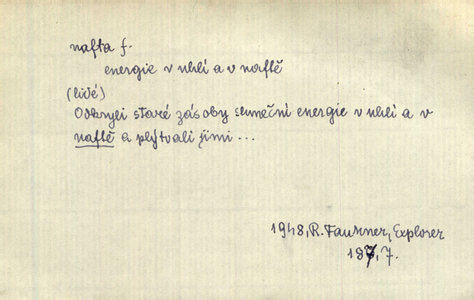 nafta f.
energie v uhlí a v naftě
(lidé)
Odkryli staré zásoby sluneční energie v uhlí a v
naftě a plýtvali jimi...
1948, R. Faukner, Explorer
187, 7.